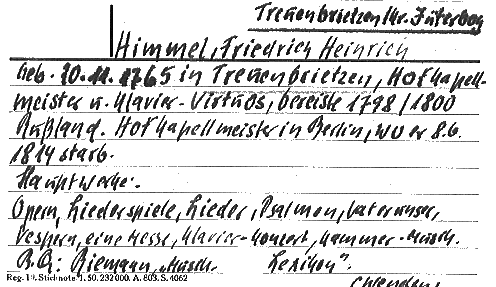 Treuenbrietzen Kr. Jüterbog
Himmel, Friedrich Heinrich
Geb. 20.11.1765 in Treuenbrietzen, Hofkapell-
meister u. Klavier-Virtuos, bereiste 1798/1800
Rußland. Hofkapellmeister in Berlin, wo er 8.6.
1814 starb.
Hauptwerke:
Opern, Liederspiele, Lieder, Psalmen, Vaterunser,
Vespern, eine Messe, Klavier-Konzert, Kammer-Musik.
Riemann, „Musik-Lexikon".
Reg. Stichnote 1. 50. 232000. A. 803. S. 4062